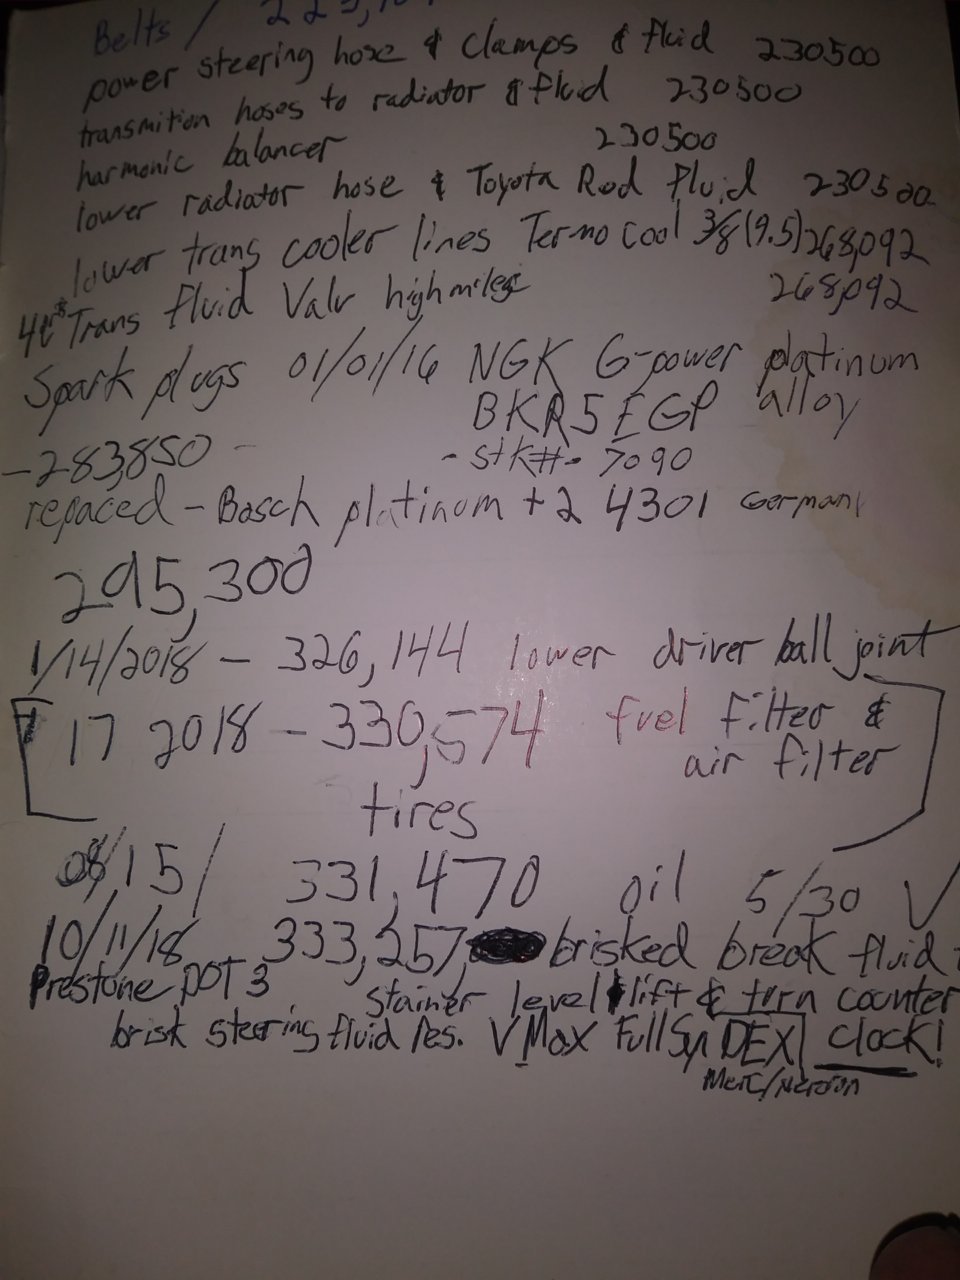 Belts /
power steering hose & clamps & fluid 230500
transmition hoses to radiator & fluid 230500
harmonic balancer 230500
lower radiator hose & Toyota Red fluid 230500
lower trans cooler lines Termo Cool 3/8 (9.5) 268,092
Trans fluid Valv high milege 268,092
Spark plugs 01/01/16 NGK G-power platinum
BKR5EGP alloy
-283,850 - - stk#- 7090
repaced - Bosch platinum +2 4301 Germany
295,300
1/14/2018 - 326,144 lower driver ball joint
17 2018 - 330,574 fuel filter &
air filter
tires
08/15/ 331,470 oil 5/30 √
10/11/18 333,257, brisked break fluid
Prestone DOT 3 stainer level lift & turn counter
brisk steering fluid Res. VMax Full Syn DEX clock!
Merc/